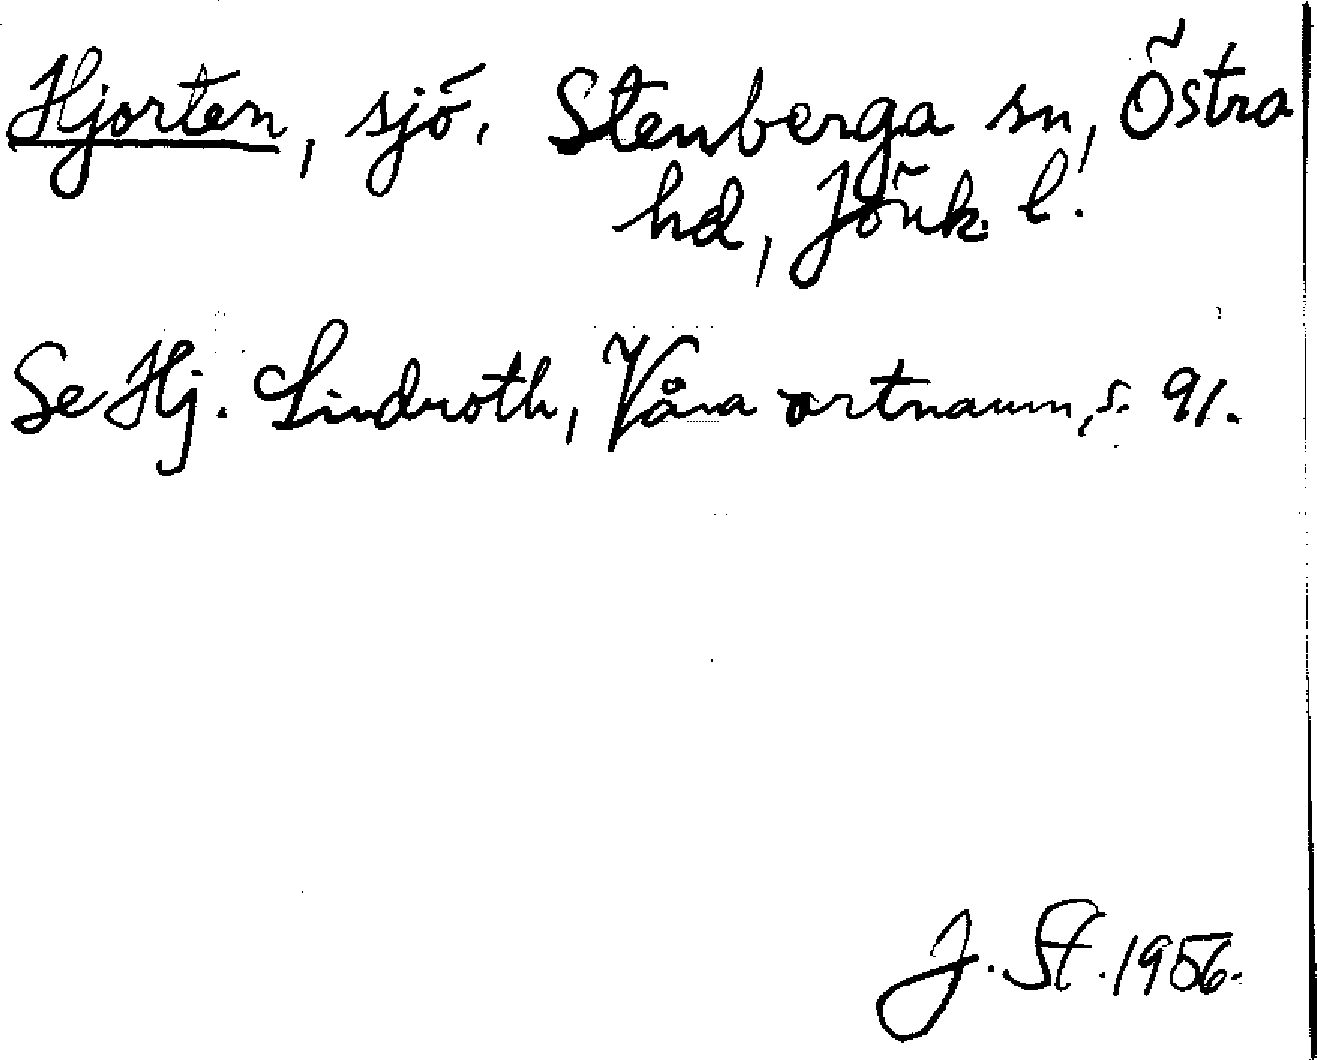 Hjorten, sjö. Stenberga sn, Östra
hd, Jönk. l.
Se Hj. Lindroth, Våra ortnamn, s. 91.
J. St. 1956.